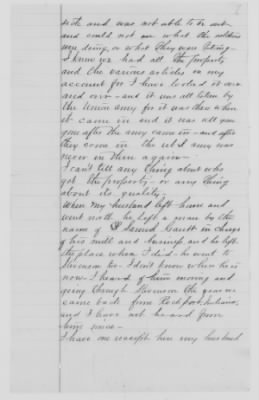 side and was not able to be out
and could not see what the soldiers
were doing, or what they were taking -
I know we had all the property
and the various articles in my
account for I have looked it over
and over - and it was all taken by
the Union army for it was there when
it came in and it was all
gone after the army came in - and after
they came in the rebel army was
never in there again -
I can't tell any thing about who
got the property - or any thing
about its quality -
When my husband left home and
went north he left a man by the
name of Samuel Gantt in charge
of his mill and business and he left
the place when I did - he went to
Stevenson too - I don't know where he is
now I heard of him moving and
going through Stevenson the year we
came back from Rockport, Indiana,
and I have not heard from
him since -
I have one receipt here my husband